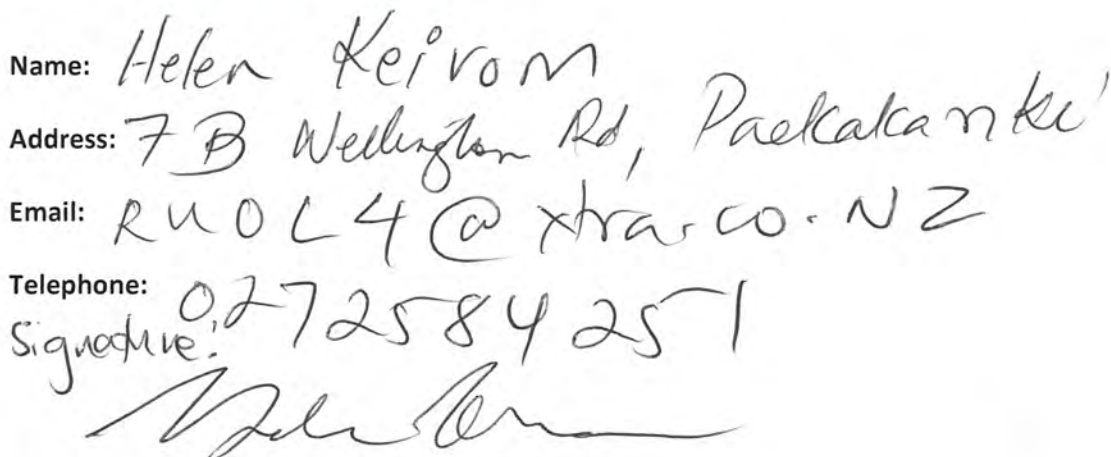 Name: Helen Keivom
Address: 7 B Wellington Rd, Paekakariki
Email: RUOL4@xtra.co.NZ
Telephone: 0272584251
Signature: